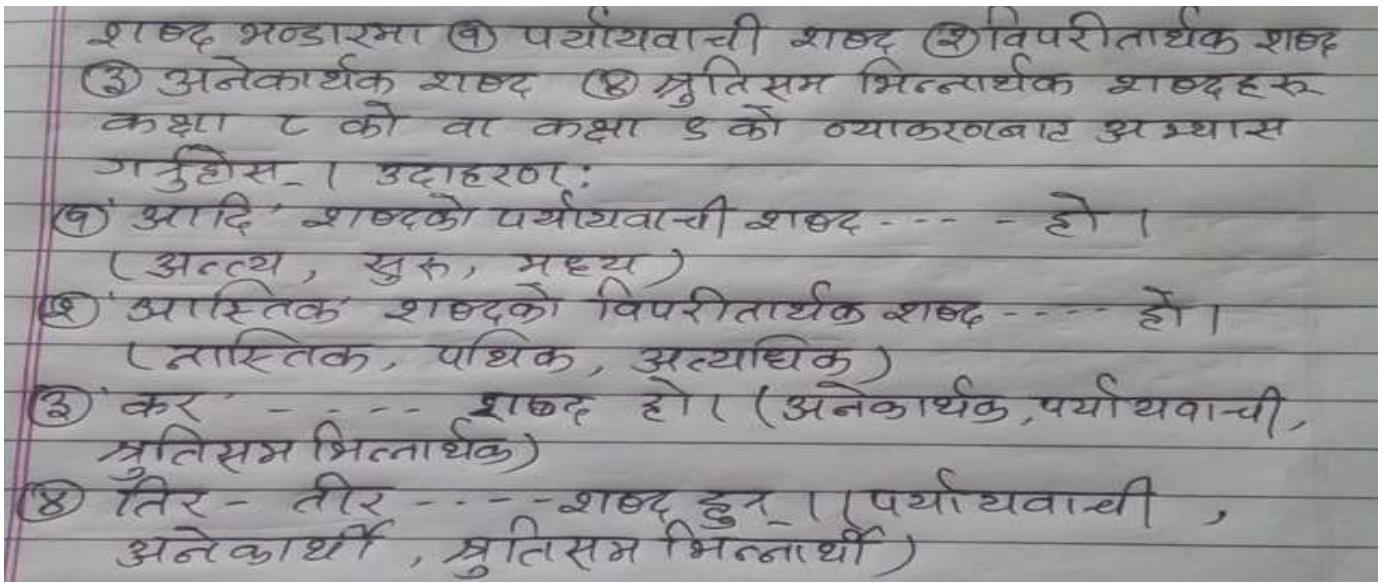 शब्द भण्डारमा (१) पर्यायवाची शब्द (२) विपरीतार्थक शब्द
(३) अनेकार्थक शब्द (४) श्रुतिसम भिन्नार्थक शब्दहरू
कक्षा ८ को वा कक्षा ९ को व्याकरणबाट अभ्यास
गर्नुहोस् । उदाहरण:
(१) 'आदि' शब्दको पर्यायवाची शब्द ---- हो ।
(अन्त्य, सुरु, मध्य)
(२) 'आस्तिक' शब्दको विपरीतार्थक शब्द ---- हो ।
(नास्तिक, पथिक, अत्यधिक)
(३) 'कर' ---- शब्द हो। (अनेकार्थक, पर्यायवाची,
श्रुतिसम भिन्नार्थक)
(४) तिर - तीर ---- शब्द हुन् । (पर्यायवाची ,
अनेकार्थी , श्रुतिसम भिन्नार्थी)